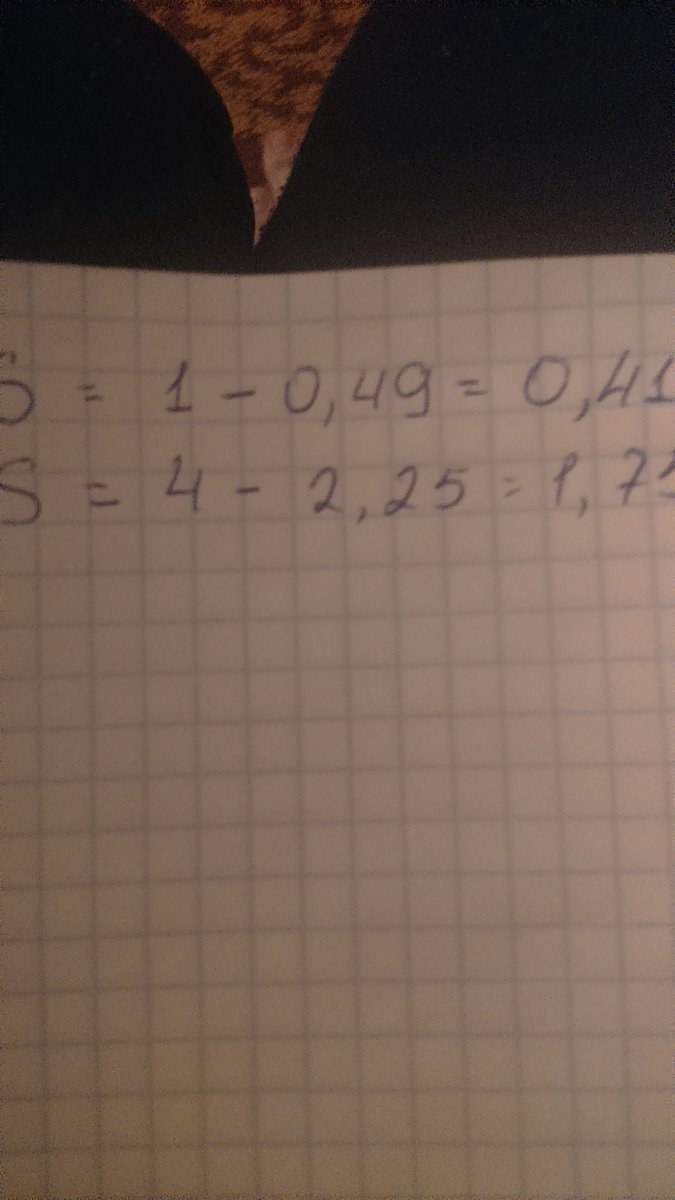 S = 1 - 0,49 = 0,41
S = 4 - 2,25 = 1,75